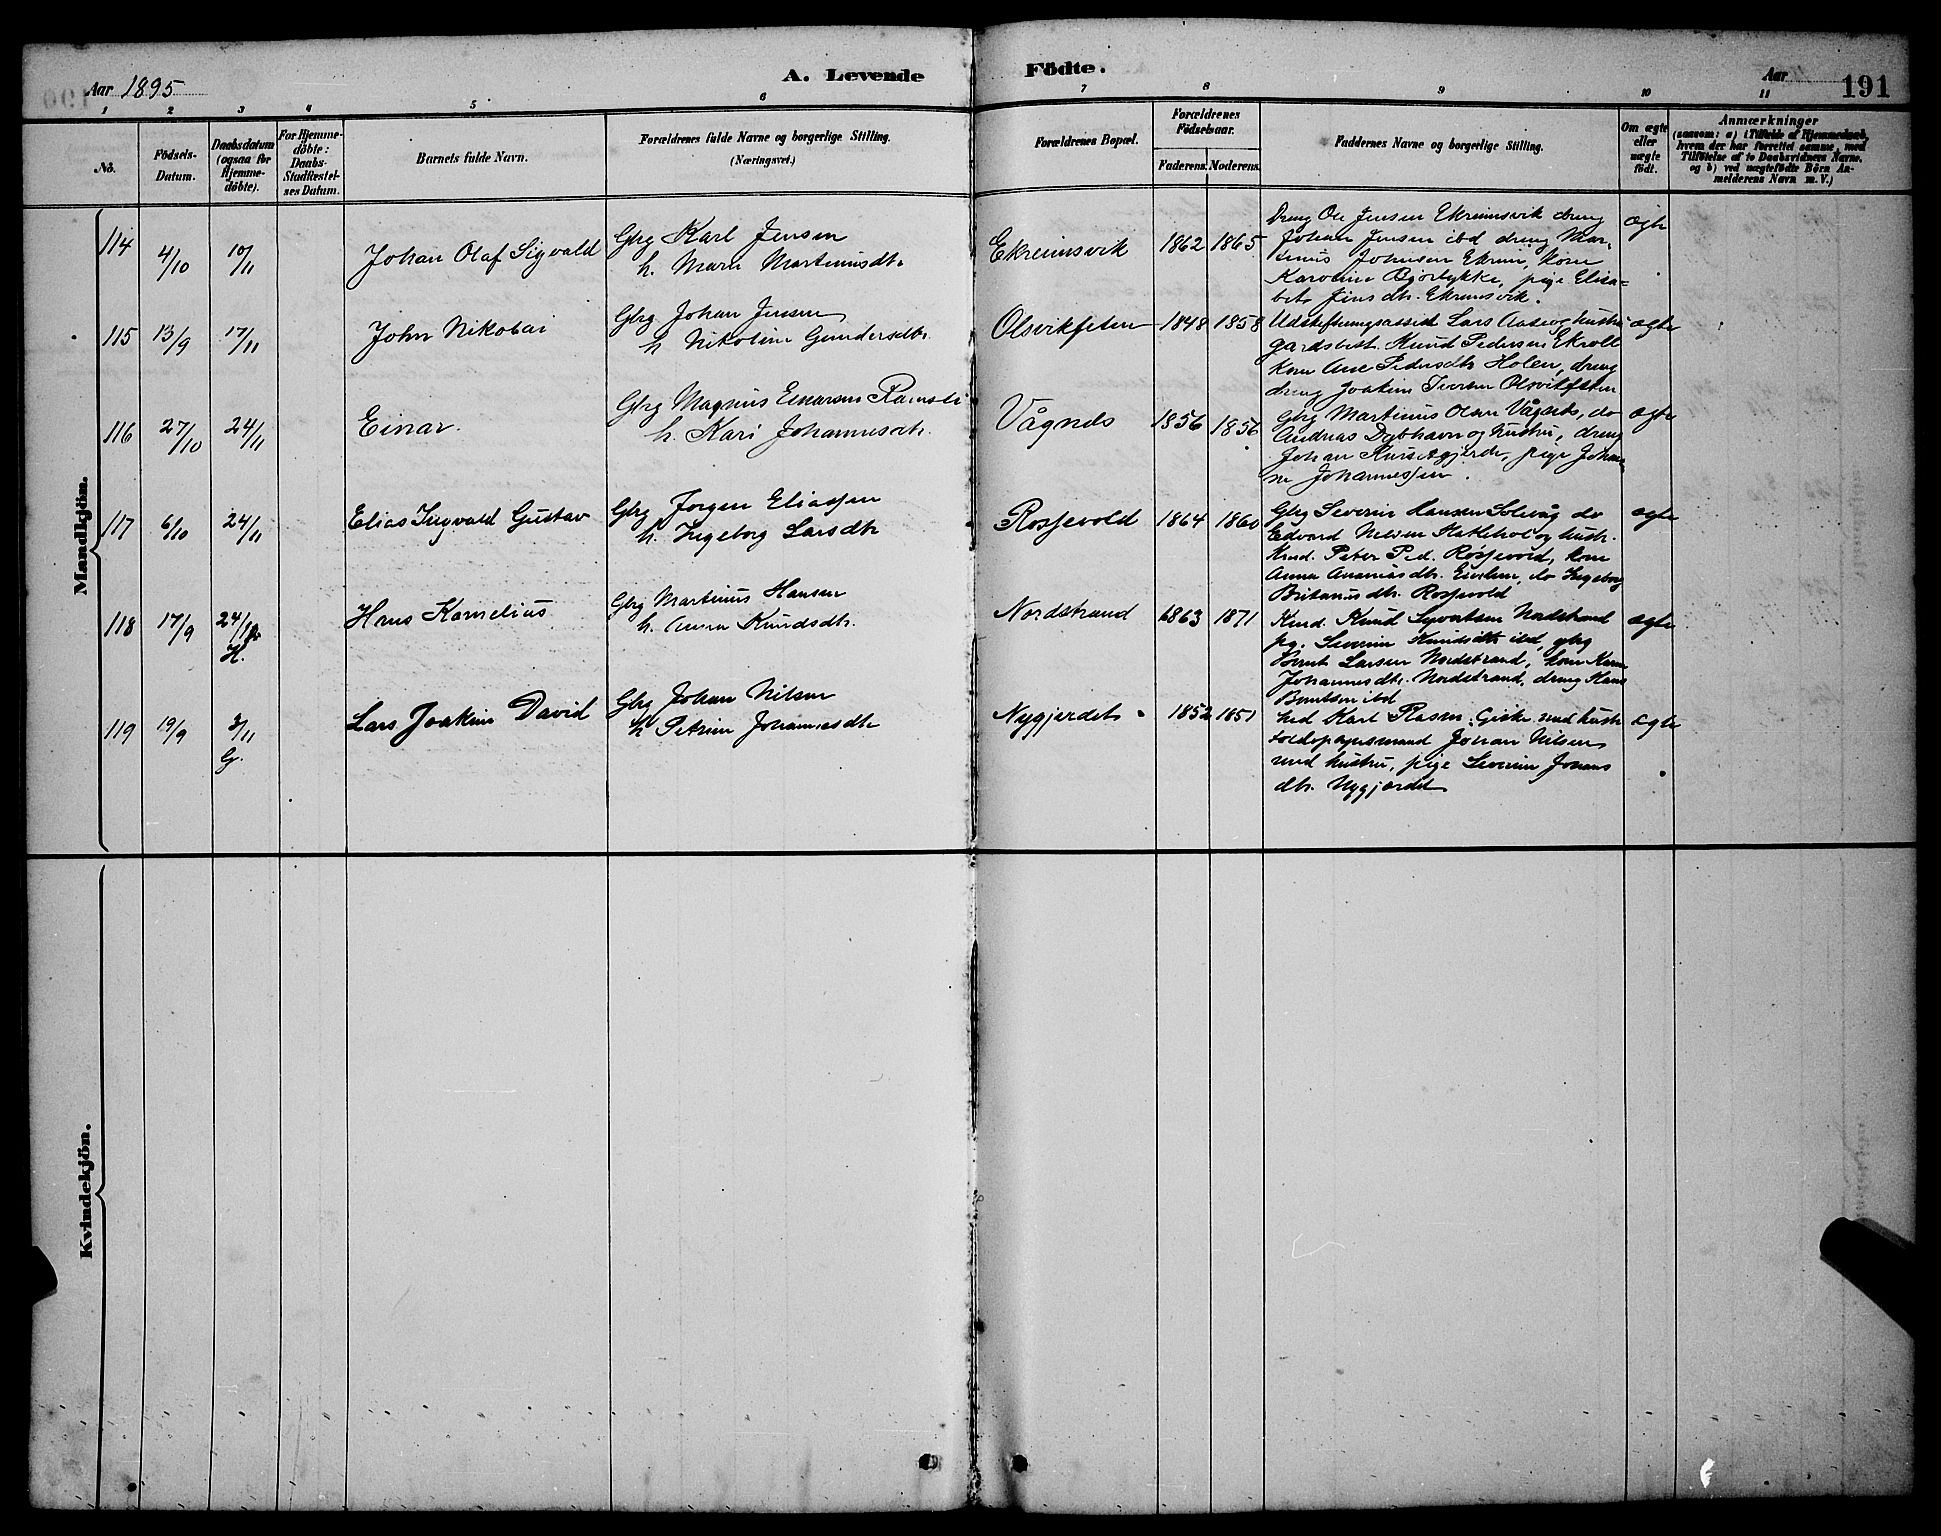 Aar 1895
A. Levende Födte.
Aar
191
1 2 3 4 5 6 7 8 9 10 11
No.
Födsels-
Datum.
Daabsdatum
(ogsaa for
Hjemme-
döbte).
For Hjemme-
döbte:
Daabs-
Stadfæstel-
ses Datum.
Barnets fulde Navn.
Forældrenes fulde Navne og borgerlige Stilling.
(Næringsvei.)
Forældrenes Bopæl.
Forældrenes
Födselsaar.
Faderens. Moderens.
Faddernes Navne og borgerlige Stilling.
Om ægte
eller
uægte
födt.
Anmærkninger
(saasom: a) i Tilfælde af Hjemmedaab,
hvem der har forrettet samme, med
Tilföielse af to Daabsvidners Navne,
og b) ved uægtefödte Börn An-
melderens Navn m. V.)
Mandkjön.
114 4/10 10/11 Johan Olaf Sigvald
Gbrg Karl Jensen
h. Maren Martinusdtr.
Ekreimsvik 1862 1865
Dreng Ole Jensen Ekreimsvik dreng
Johan Jensen ibd dreng Mar-
tinus Johnsen Ekrem, kone
Karoline , pige Elisa-
bet Jensdtr. Ekremsvik.
ægte
115 13/9 17/11 John Nikolai
Gbrg Johan Jensen
h. Nikoline Gundersdtr.
Olsvikfeten 1848 1858
Udskiftningsassist Lars og hustru
gardsbest. Knud Pedersen Ekroll
kone Ane Pedersdtr Holen, dreng
dreng Joakim Iversen Olsvikfeten
ægte
116 27/10 24/11 Einar.
Gbrg Magnus Einarsen
h. Kari Johannesdtr.
Vågnes 1856 1856
Gbrg Martinus Olsen Vågnes, do
Andreas Dybhavn og hustru, dreng
Johan , pige Johan-
ne Johannessen.
ægte
117 6/10 24/11 Elias Ingvald Gustav
Gbrg Jørgen Eliassen
h. Ingeborg Larsdtr
Rossevold 1864 1860
Gbrg Severin Hansen Solevåg do
Edvard Nilsen og hustr.
Knud. Peter Ped. Rossevold, kone
Anna Ananiasdtr. , do Ingeborg
Britanusdtr. Rossevold
ægte
118 17/9 24/11 H.
Hans Kornelius
Gbrg Martinus Hansen
h. Anna Knudsdtr.
Nordstrand 1863 1871
Knud Syvertsen Nordstrand
pg. Severine Knudsdtr ibd, gbrg
Bernt Larsen Nordstrand, kone Karen
Johannesdtr. Nordstrand, dreng Hans
Berntsen ibd
ægte
119 19/9 3/11 G.
Lars Joakim David
Gbrg Johan Nilsen
h Petrine Johannesdtr
Nygjerdet 1852 1851
Karl Rasm. Giske med hustr
Johan Nilsen
med hustru, pige Severine Johans
dtr. Nygjerdet
ægte
Kvindekjön.